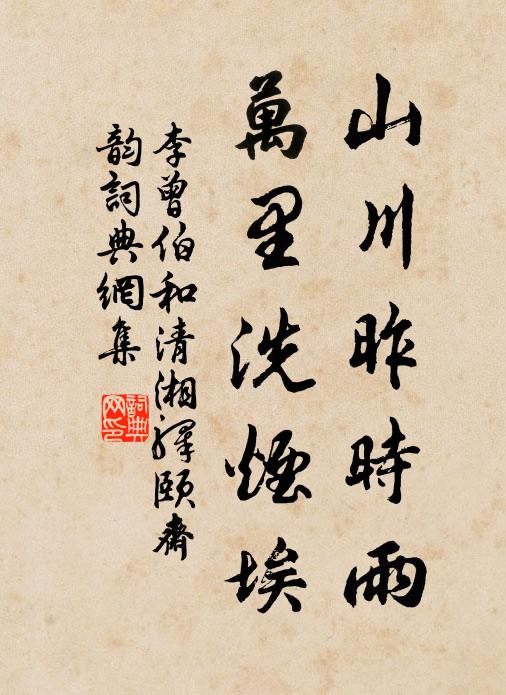 山川昨時雨
萬里洗煙埃
李曾伯和清湘譯頤齋
韵詞典網集
詞典網印